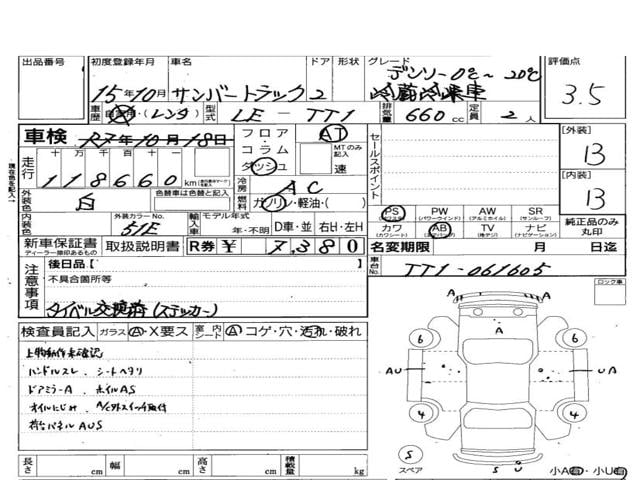 出品番号 初度登録年月 車名 ドア 形状 グレード 評価点
15年10月 サンバートラック 2 デンソー0℃~20℃ 冷蔵冷凍車 3.5
車歴 自家用・(レンタ) 型式 LE-TT1 排気量 660cc 定員 2人
車検 R7年10月18日 フロア AT
コラム MTのみ記入
ダッシュ 速
走行 十万 万 千 百 十 一
118660km
外装色 白 色替車は色替と記入
冷房 AC
燃料 ガソリン・軽油・( )
内装色 外装カラーNo. 51E 輸入車 モデル年式 年・不明 D車・並 右H・左H
新車保証書 取扱説明書 R券 ¥ 7,380
ディーラー捺印あるもの
セールスポイント
[外装] B
[内装] B
PS PW AW SR
(パワステ) (パワーウインド) (アルミホイル) (サンルーフ)
カワ AB TV ナビ
(カワシート) (エアバック) (地デジ) (ナビゲーション)
純正品のみ丸印
名変期限 月 日迄
車台No. TT1-061605
注意事項 後日品【 】
不具合箇所等
タイベル交換済(ステッカー)
検査員記入 ガラス A・X要ス 室内シート A コゲ・穴・汚れ・破れ
上物動作未確認
ハンドルスレ、シートヘタリ
ドアミラーA、ホイルAS
オイルにじみ、
荷台パネルAUS
長さ cm 幅 cm 高さ cm 積載量 kg
ロック車
A A
6 6
AU UA
4 4
S スペア
S U
小A有・小U有
現在色を記入